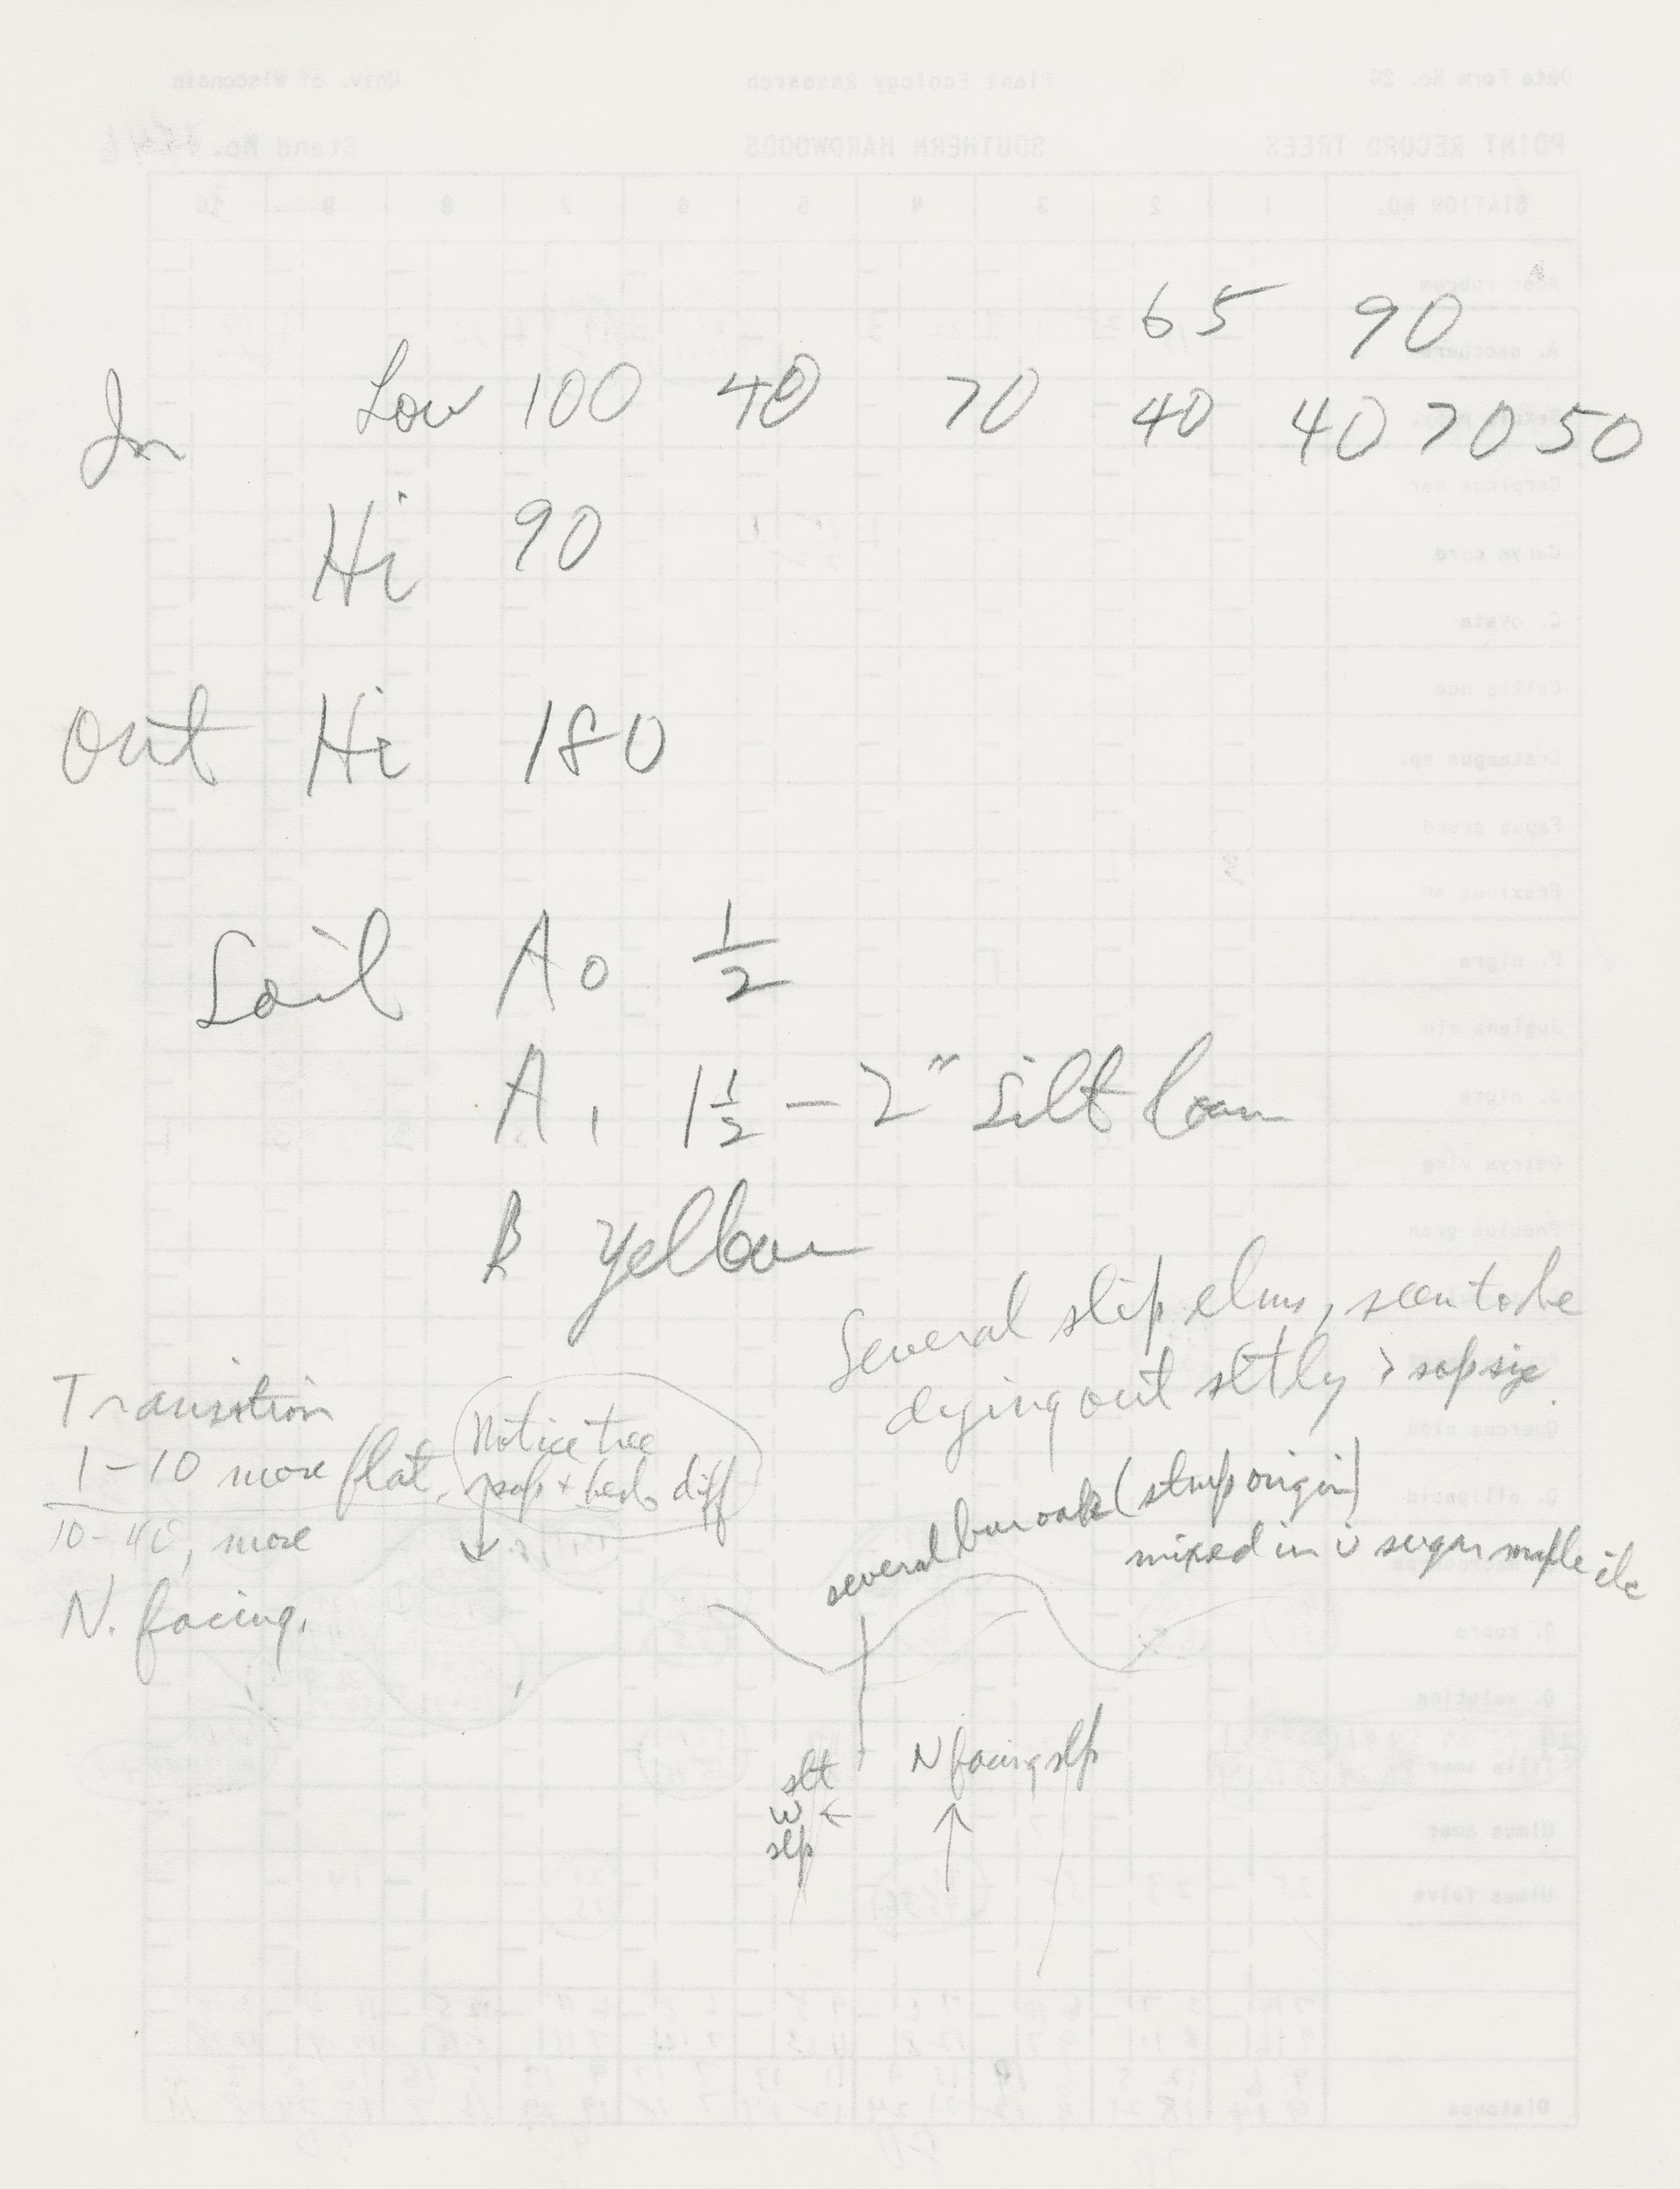 65 90
In Low 100 40 70 40 40 70 50
Hi 90
Out Hi 180
Soil A0 1/2
A1 1 1/2 - 2" silt loam
B yellow
Several slip elms, seem to be
dying out sltly > sap size.
Transition
1-10 more flat,
Notice tree
sap + herb diff
10-40, more
N. facing.
several bur oak (stump origin)
mixed in c̄ sugar maple etc
slt
W ←
slp
N facing slp